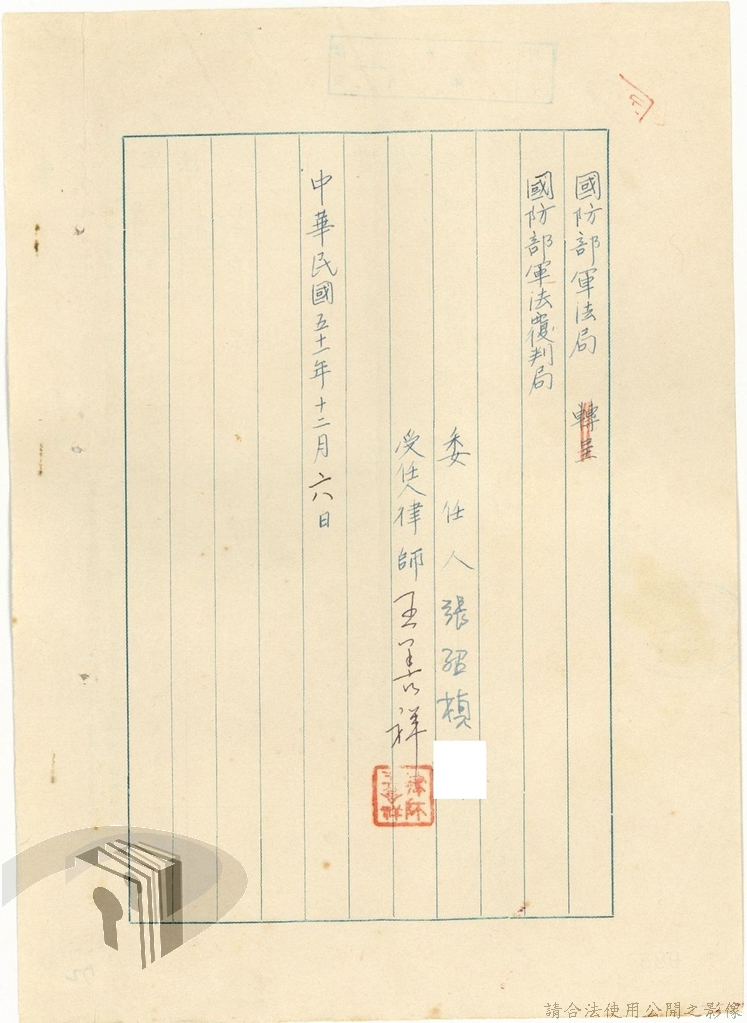 國防部軍法局 轉呈
國防部軍法覆判局
委任人張
受任人律師王善祥
中華民國五十一年十二月六日
律師
請合法使用公開之影像